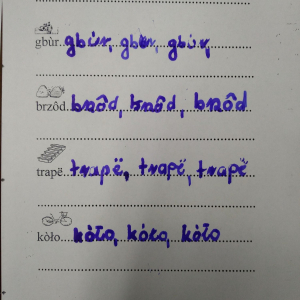 gbùr...gbùr, gbùr, gbùr,
brzôd...brzôd, brzôd, brzôd
trapë...trapë, trapë, trapë
kòło...kòło, kòło, kòło